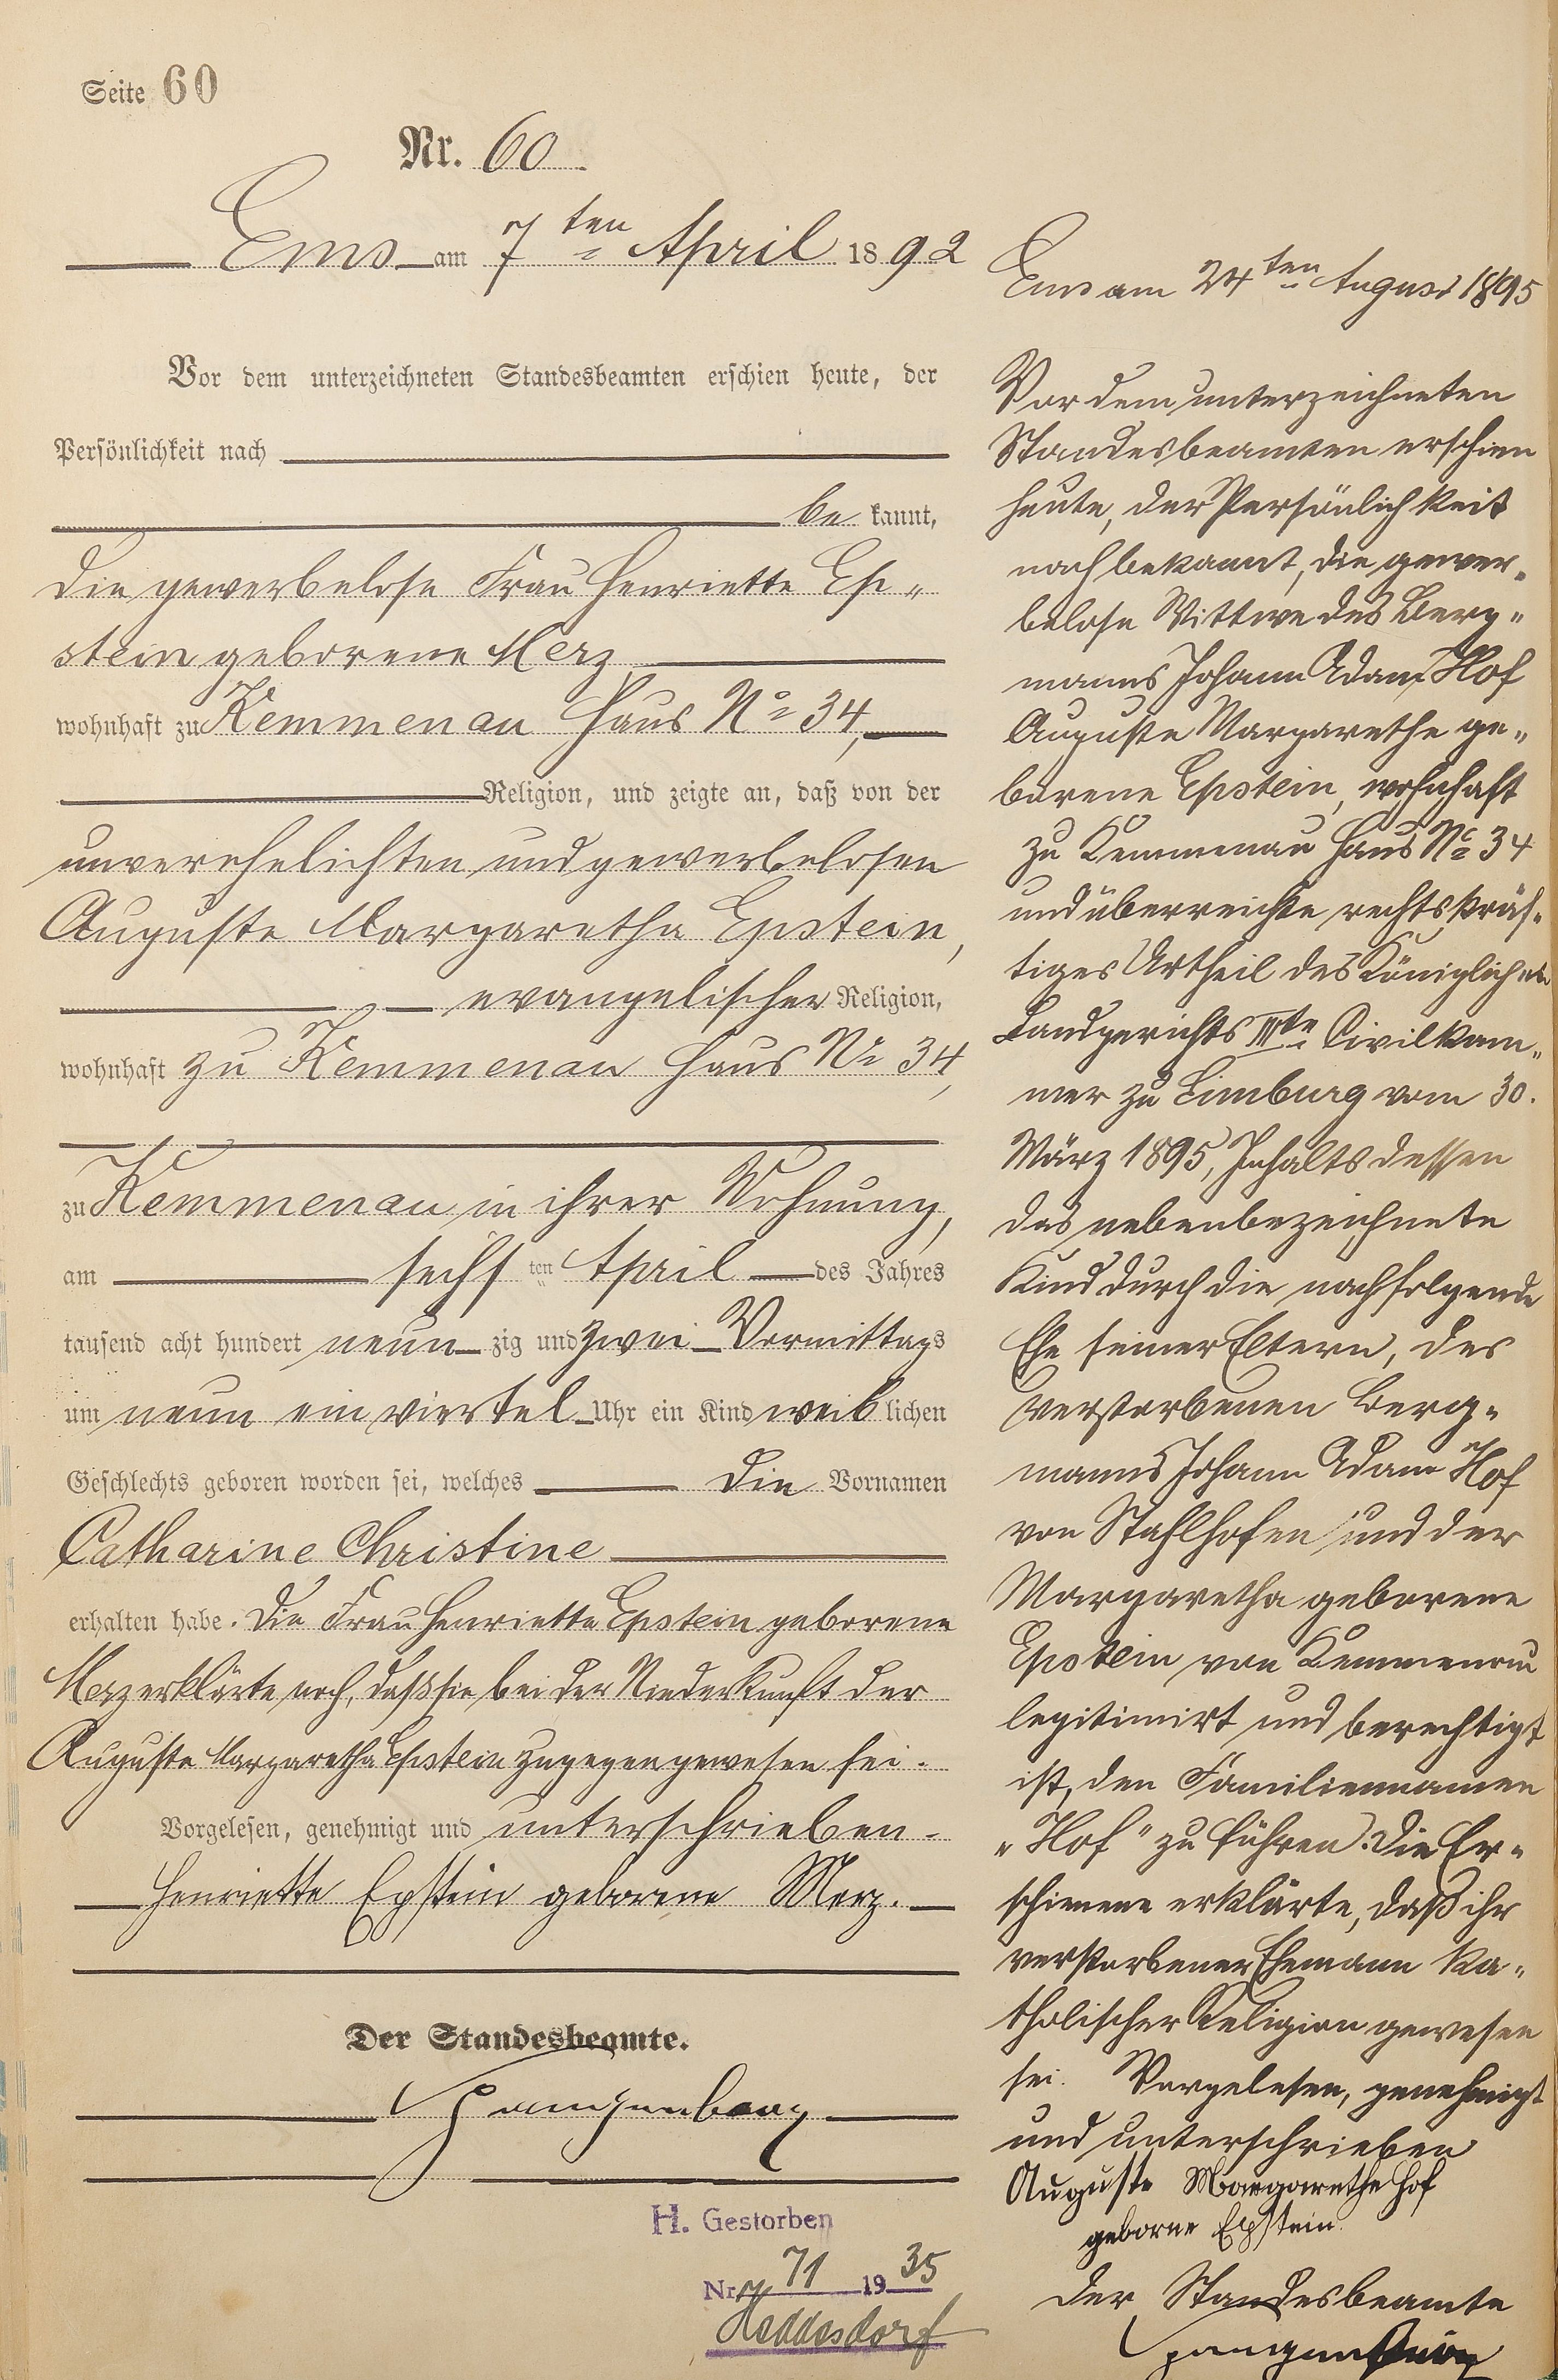 Seite 60
Nr. 60
Ems am 7ten April 1892
Vor dem unterzeichneten Standesbeamten erschien heute, der
Persönlichkeit nach
be kannt,
die gewerbelose Frau Henriette Ep„
stein geborene Merz
wohnhaft zu Kemmenau Haus No 34,
Religion, und zeigte an, daß von der
unverehelichten und gewerbelosen
Auguste Margaretha Epstein,
evangelischer Religion,
wohnhaft zu Kemmenau Haus No 34,
zu Kemmenau in ihrer Wohnung,
am sechsten April des Jahres
tausend acht hundert neun zig und zwei Vormittags
um neun ein viertel Uhr ein Kind weib lichen
Geschlechts geboren worden sei, welches die Vornamen
Catharine Christine
erhalten habe. Die Frau Henriette Epstein geborene
Merz erklärte noch, daß sie bei der Niederkunft der
Auguste Margaretha Epstein zugegen gewesen sei.
Vorgelesen, genehmigt und unterschrieben.
Henriette Epstein geborene Merz.
Der Standesbeamte.
Spangenberg
H. Gestorben
Nr. 71 1935
Heddesdorf
Ems am 24ten August 1895
Vor dem unterzeichneten
Standesbeamten erschien
heute, der Persönlichkeit
nach bekannt, die gewer„
belose Wittwe des Berg„
manns Johann Adam Hof
Auguste Margarethe ge„
borene Epstein, wohnhaft
zu Kemmenau Haus No 34
und überreichte rechtskräf„
tiges Urtheil des Königlichen
Landgerichts IIIte Civilkam„
mer zu Limburg vom 30.
März 1895, Inhalts dessen
das nebenbezeichnete
Kind durch die nachfolgende
Ehe seiner Eltern, des
verstorbenen Berg„
manns Johann Adam Hof
von Stahlhofen und der
Margaretha geborene
Epstein von Kemmenau
legitimirt und berechtigt
ist, den Familiennamen
„Hof" zu führen. Die Er„
schienene erklärte, daß ihr
verstorbener Ehemann ka„
tholischer Religion gewesen
sei. Vorgelesen, genehmigt
und unterschrieben
Auguste Margarethe Hof
geborne Epstein.
Der Standesbeamte
Spangenberg